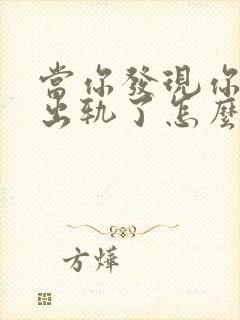 當你發現你
出軌了怎麼
方燁